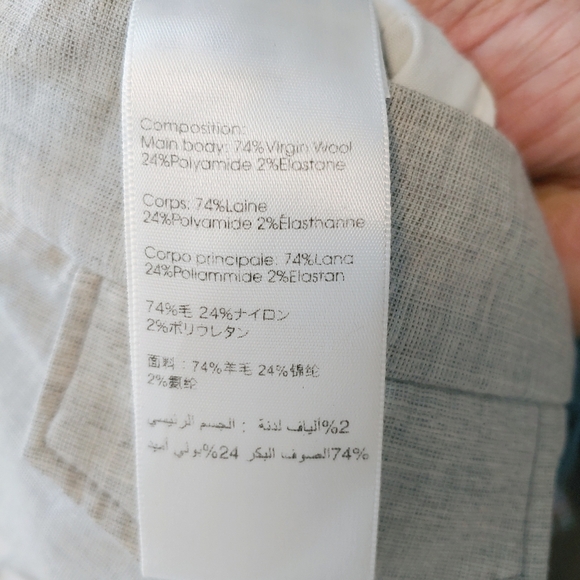 Composition:
Main body: 74%Virgin Wool
24%Polyamide 2%Elastane
Corps: 74%Laine
24%Polyamide 2%Élasthanne
Corpo principale: 74%Lana
24%Poliammide 2%Elastan
74%毛 24%ナイロン
2%ポリウレタン
面料：74%羊毛 24%锦纶
2%氨纶
%2ألياف لدنة : الجسم الرئيسي
%74الصوف البكر 24%بولي أميد